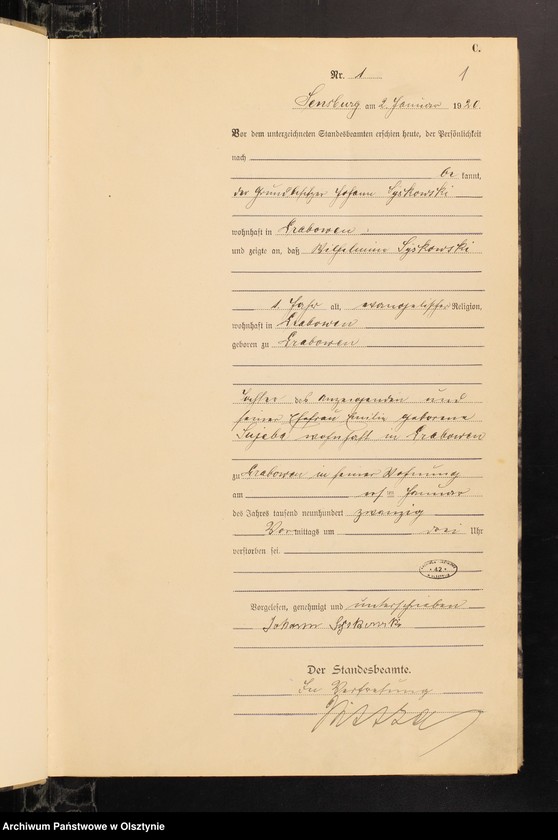 C.
Nr. 1
1
Sensburg am 2. Januar 1920.
Vor dem unterzeichneten Standesbeamten erschien heute, der Persönlichkeit
nach
be kannt,
der Grundbesitzer Johann Syskowski
wohnhaft in Grabowen
und zeigte an, daß Wilhelmine Syskowski
1 Jahr alt, evangelischer Religion,
wohnhaft in Grabowen
geboren zu Grabowen
Tochter des Anzeigenden und
seiner Ehefrau Emilie geborene
wohnhaft in Grabowen
zu Grabowen in seiner Wohnung
am Januar
des Jahres tausend neunhundert zwanzig
Vor mittags um drei Uhr
verstorben sei.
42
Vorgelesen, genehmigt und unterschrieben
Johann Syskowski
Der Standesbeamte.
In Vertretung
Archiwum Państwowe w Olsztynie